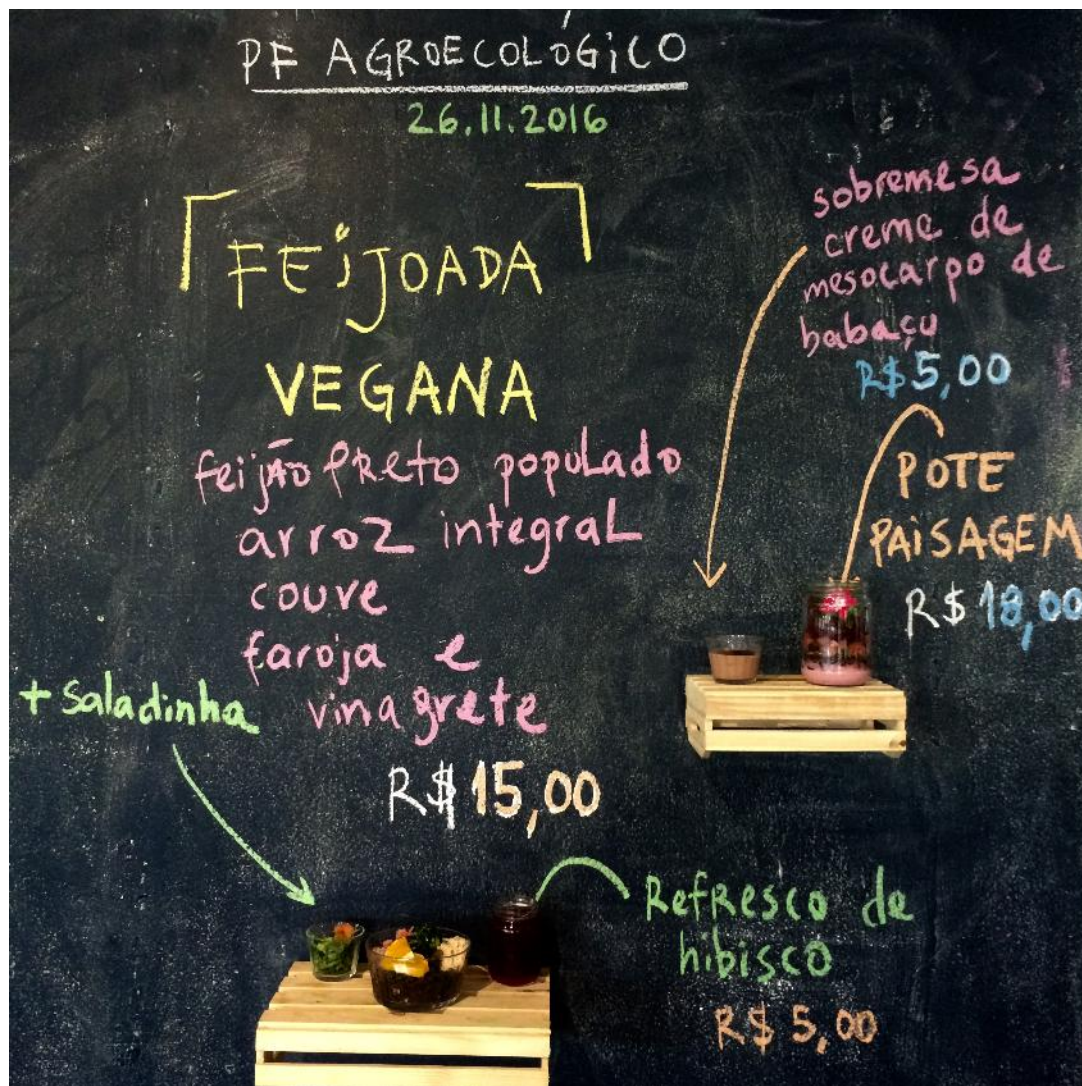 PF AGROECOLÓGiCO
26.11.2016
FEiJOADA
VEGANA
feijão PReto populado
arroz integral
couve
faroja e
vinagrete
+ saladinha
R$ 15,00
sobremesa
creme de
mesocarpo de
babaçu
R$ 5,00
POTE
PAiSAGEM
R$ 18,00
RefResco de
hibisco
R$ 5,00